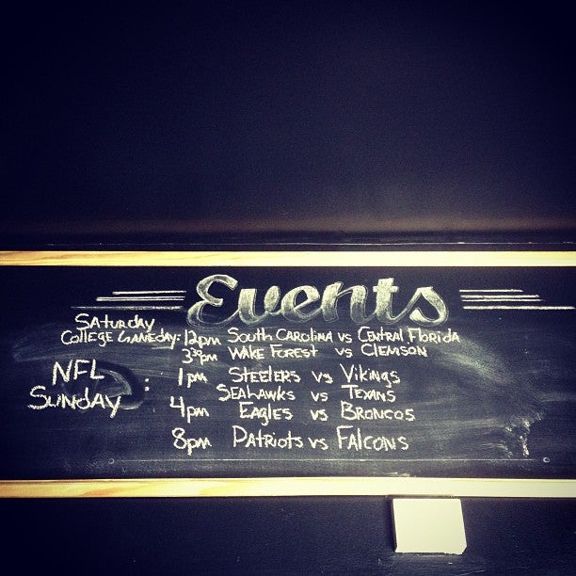 Events
Saturday
College Gameday: 12pm South Carolina vs Central Florida
3:30pm Wake Forest vs Clemson
NFL Sunday : 1pm Steelers vs Vikings
Seahawks vs Texans
4pm Eagles vs Broncos
8pm Patriots vs Falcons